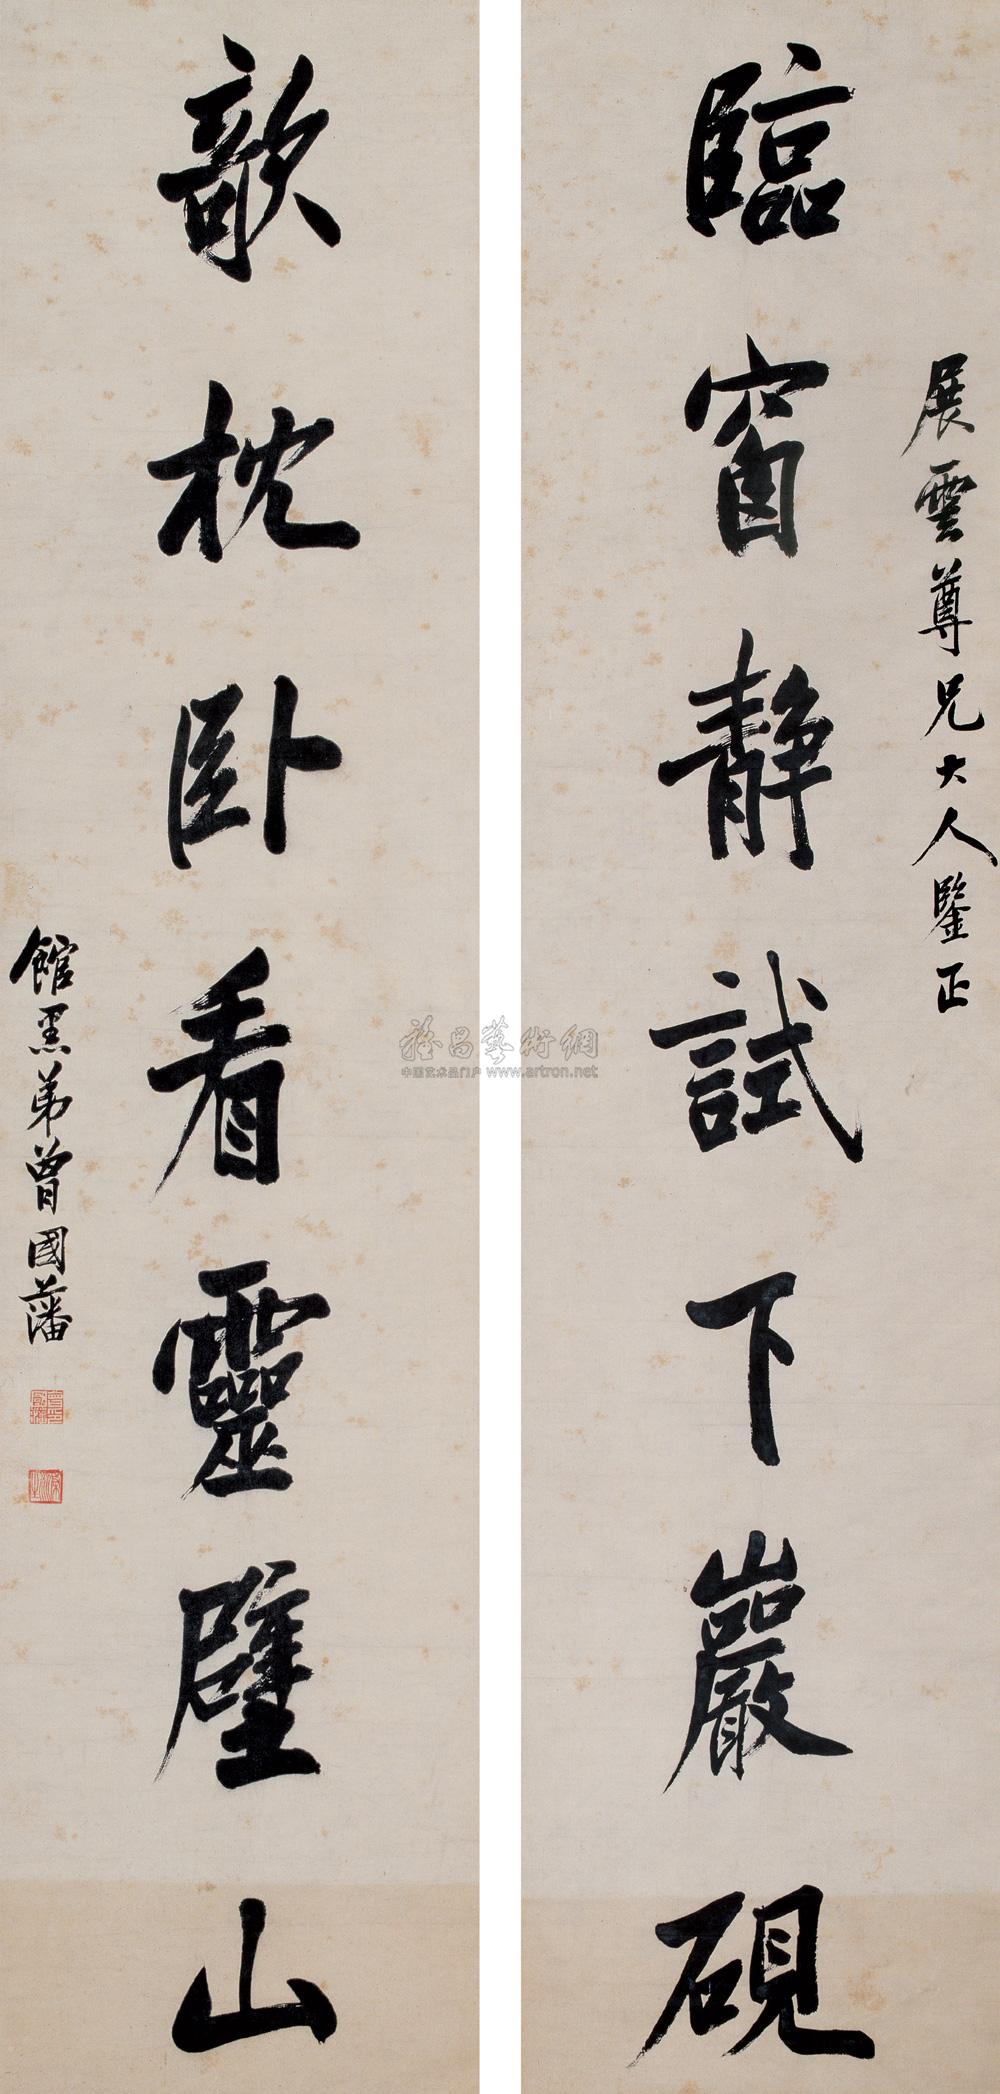 展雲尊兄大人鑒正
臨窗靜試下巖硯
欹枕卧看靈壁山
館愚弟曾國藩
雅昌藝術網
中国艺术品门户 www.artron.net